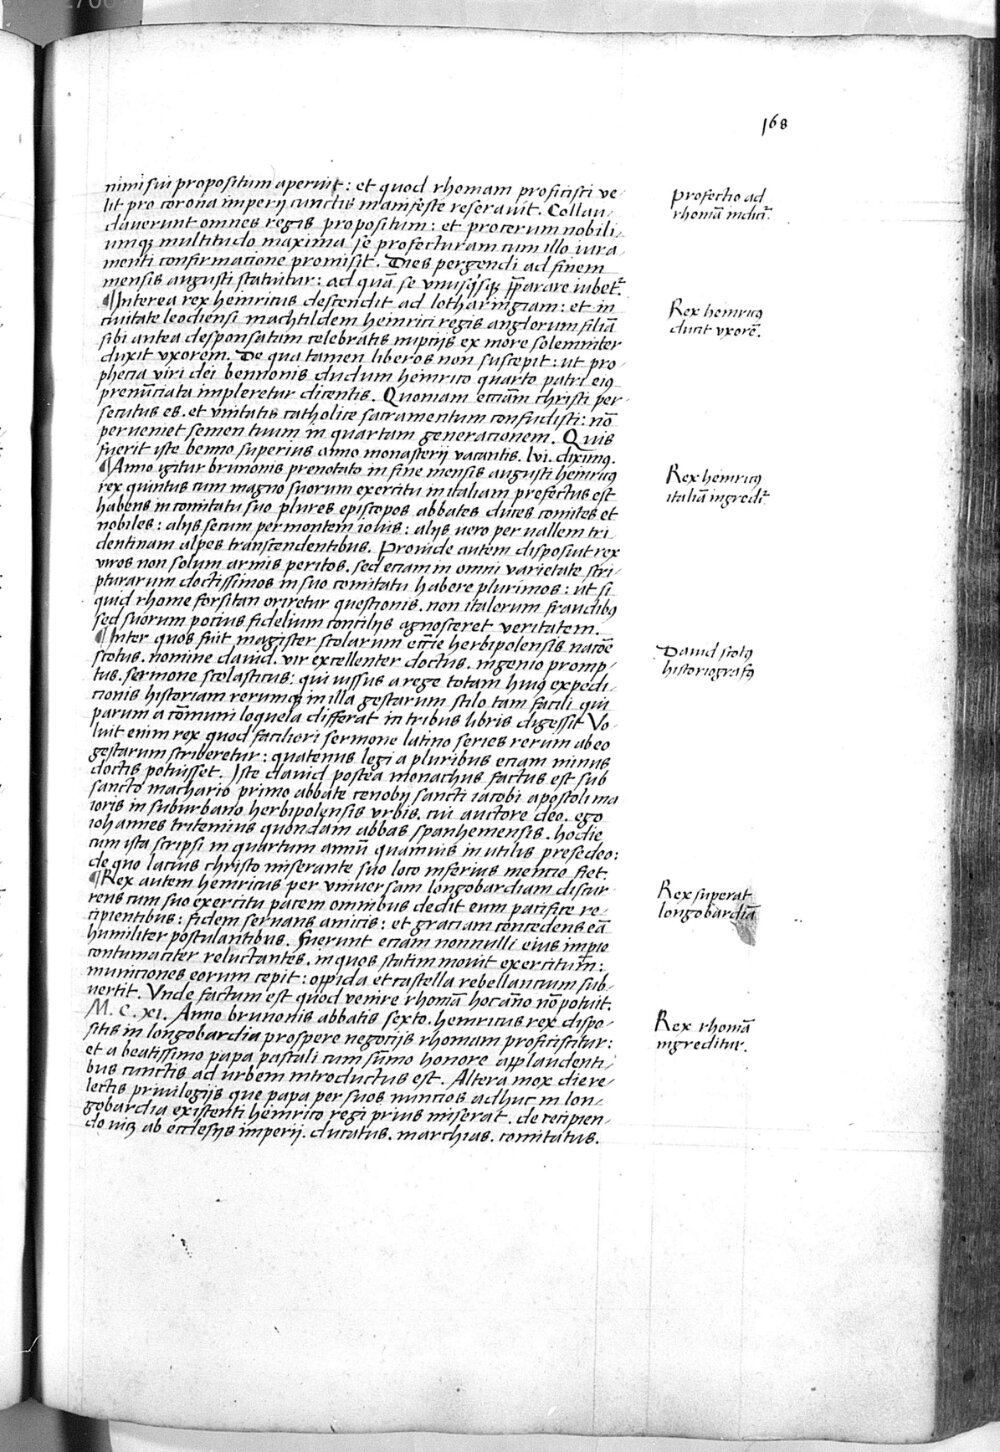 168
nimi sui propositum aperuit: et quod rhomam proficisci ve-
lit pro corona imperij cunctis manifeste reseravit. Collau-
daverunt omnes regis propositum: et procerum nobili-
umqꝫ multitudo maxima se profecturam cum illo iura-
menti confirmacione promisit. Dies pergendi ad finem
mensis augusti statuitur: ad quā se vnusqisqꝫ p̄parare iubetᷣ.
¶Interea rex heinricus descendit ad lotharingiam: et in
civitate leodiensi machtildem heinrici regis anglorum filiā
sibi antea desponsatam celebratis nuptijs ex more solemniter
duxit vxorem. De qua tamen liberos non suscepit: ut pro-
phecia viri dei bennonis dudum heinrico quarto patri eiꝰ
prenūciata impleretur dicentis. Quoniam ecciām christi per-
secutus es. et vnitatis catholice sacramentum confudisti: nō
perveniet semen tuum in quartam generacionem. Quis
fuerit iste benno superius anno monasterij vacantis. lvi. diximꝰ.
¶Anno igitur brunonis prenotato in fine mensis augusti heinricꝰ
rex quintus cum magno suorum exercitu in italiam profectus est
habens in comitatu suo plures episcopos abbates duces comites et
nobiles: alijs secum per montem iovis: alijs vero per vallem tri-
dentinam alpes transcendentibus. Provide autem disposuit rex
viros non solum armis peritos. sed eciam in omni varietate scri-
pturarum doctissimos in suo comitatu habere plurimos: ut si
quid rhome forsitan oriretur questionis. non italorum fraudibꝰ
sed suorum pocius fidelium consilijs agnosceret veritatem.
¶Inter quos fuit magister scolarum eccīe herbipolensis natōe
scotus. nomine david. vir excellenter doctus. ingenio promp-
tus. sermone scolasticus: qui iussus a rege totam huiꝰ expedi-
cionis historiam rerumqꝫ in illa gestarum stilo tam facili qui
parum a cōmuni loquela differat in tribus libris digessit Vo-
luit enim rex quod faciliori sermone latino series rerum ab eo
gestarum scriberetur: quatenus legi a pluribus eciam minus
doctis potuisset. Iste david postea monachus factus est sub
sancto machario primo abbate cenobij sancti iacobi apostoli ma
ioris in suburbano herbipolensis vrbis. cui auctore deo. ego
iohannes tritemius quondam abbas spanhemensis. hodie
cum ista scripsi in quartum annū quamvis inutilis presedeo:
de quo lacius christo miserante suo loco inferius mencio fiet.
¶Rex autem heinricus per vniversam longobardiam discur
rens cum suo exercitu pacem omnibus dedit eum pacifice re-
cipientibus: fidem servans amicis: et graciam concedens eā
humiliter postulantibus. Fuerunt eciam nonnulli eius impio
contumaciter reluctantes. in quos statim movit exercitum:
municiones eorum cepit: oppida et castella rebellancium sub-
vertit. Vnde factum est quod venire rhomā hoc anno nō potuit.
M. C. XI. Anno brunonis abbatis sexto. heinricus rex dispo-
sitis in longobardia prospere negocijs rhomam proficiscitur:
et a beatissimo papa pascali cum sūmo honore applaudenti-
bus cunctis ad urbem introductus est. Altera mox die re-
lectis privilegijs que papa per suos nuncios adhuc in lon-
gobardia existenti heinrico regi prius miserat. de recipien-
do uicꝫ ab ecclesijs imperij. ducatus. marchias. comitatus.
profectio ad
rhomā indicitᷣ.
Rex heinricꝰ
ducit vxorē.
Rex heinricꝰ
italiā ingreditᷣ
David scotꝰ
historiografꝰ
Rex superat
longobardiā
Rex rhomā
ingreditur.